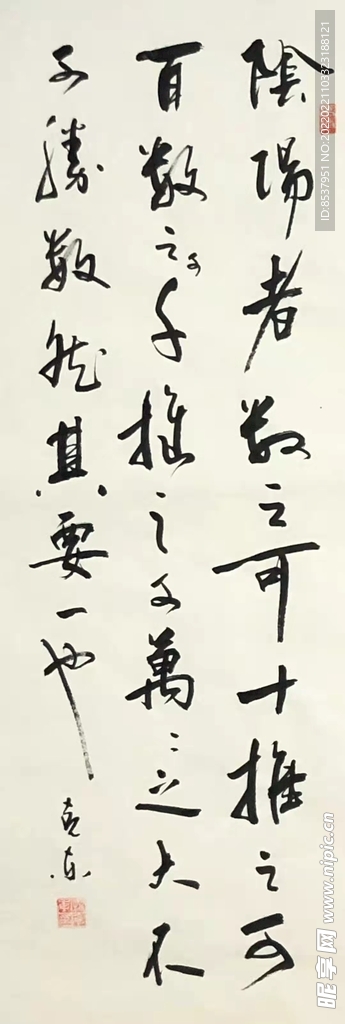 陰陽者数之可十推之可
百数之可千推之可萬〻之大不
可勝数然其要一也
ID:8537951 NO:20220221103323188121
昵享网 www.nipic.cn